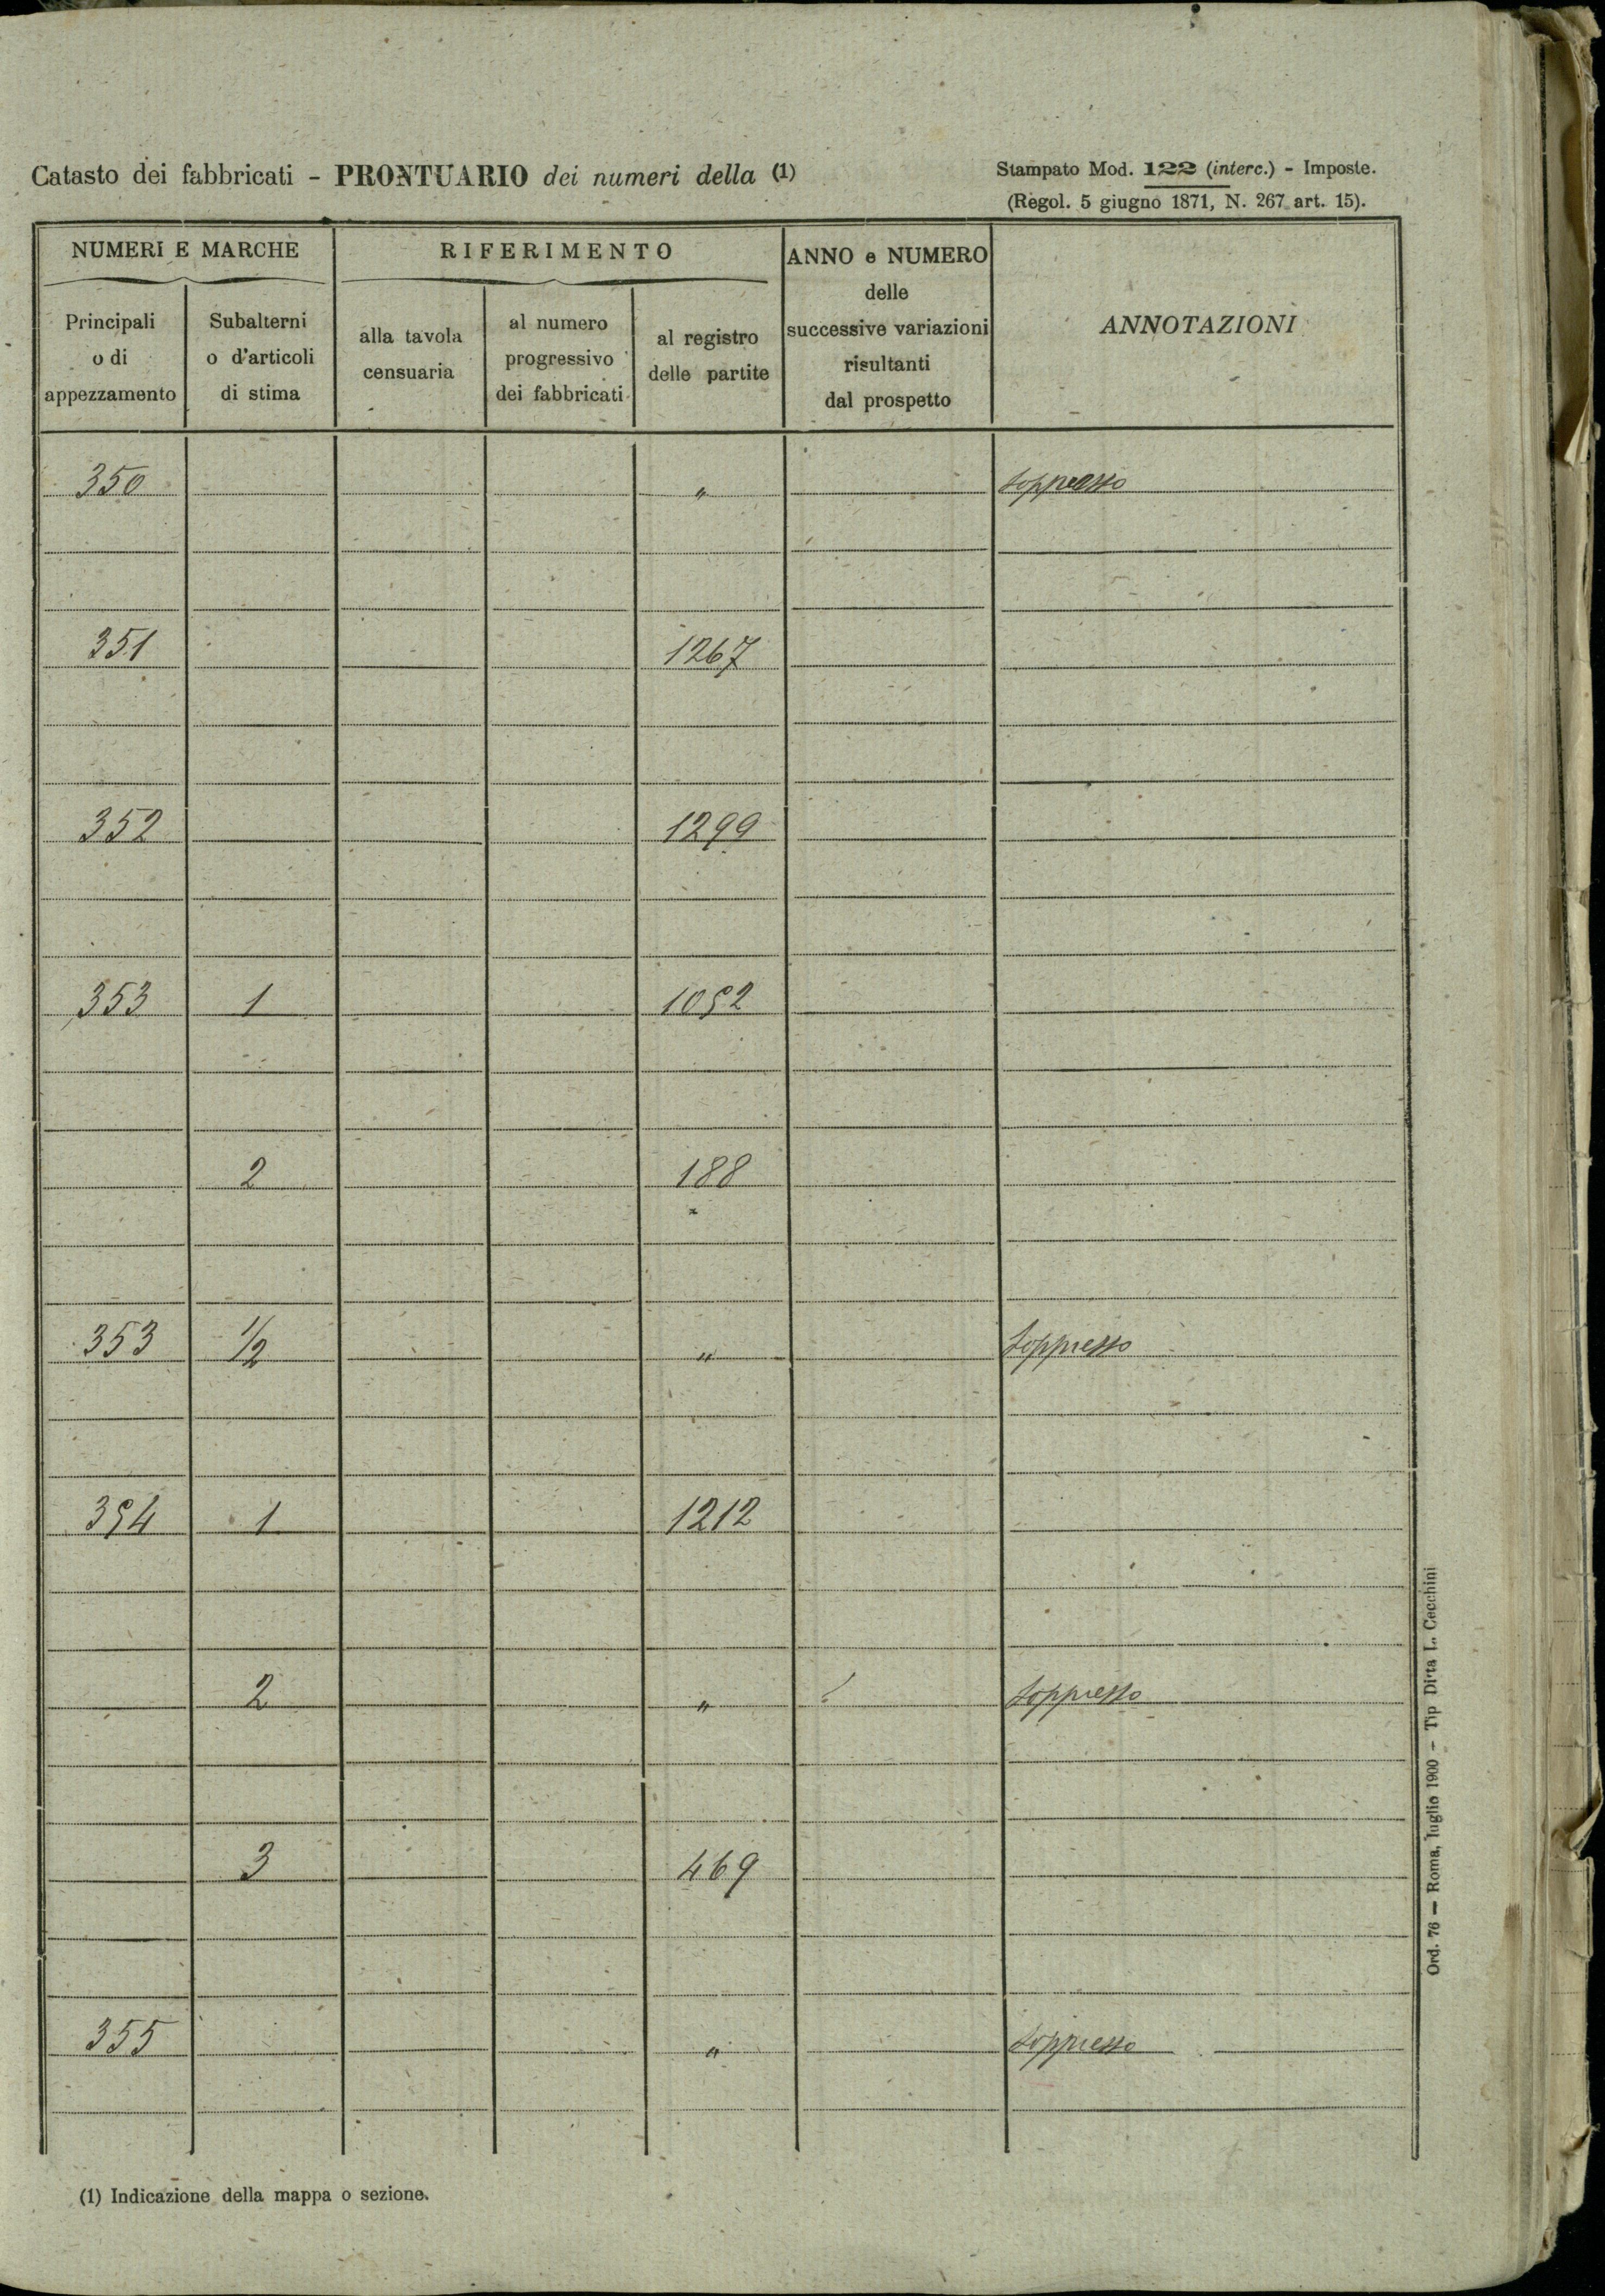 Catasto dei fabbricati - PRONTUARIO dei numeri della (1)
Stampato Mod. 122 (interc.) - Imposte.
(Regol. 5 giugno 1871, N. 267 art. 15).
NUMERI E MARCHE
RIFERIMENTO
ANNO e NUMERO
delle
successive variazioni
risultanti
dal prospetto
ANNOTAZIONI
Principali
o di
appezzamento
Subalterni
o d'articoli
di stima
alla tavola
censuaria
al numero
progressivo
dei fabbricati
al registro
delle partite
350 " soppresso
351 1267
352 1299
353 1 1052
2 188
353 1/2 " soppresso
354 1 1212
2 " soppresso
3 469
355 " soppresso
(1) Indicazione della mappa o sezione.
Ord. 76 — Roma, luglio 1900 - Tip Ditta L. Cecchini